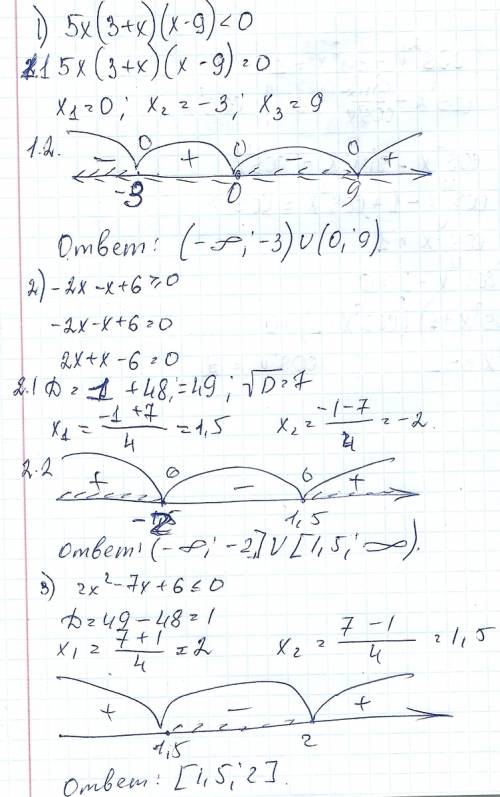 1) 5x(3+x)(x-9)<0
1.1 5x(3+x)(x-9)=0
x₁=0; x₂=-3; x₃=9
1.2.
0 0 0
- + - +
-3 0 9
Ответ: (-∞;-3)∪(0;9)
2) -2x-x+6≥0
-2x-x+6=0
2x+x-6=0
2.1 D=1+48=49; √D=7
x₁=(-1+7)/4=1,5 x₂=(-1-7)/4=-2.
2.2
0 0
+ - +
-2 1,5
Ответ: (-∞;-2]∪[1,5;∞).
3) 2x²-7x+6≤0
D=49-48=1
x₁=(7+1)/4=2 x₂=(7-1)/4=1,5
+ - +
1,5 2
Ответ: [1,5;2].